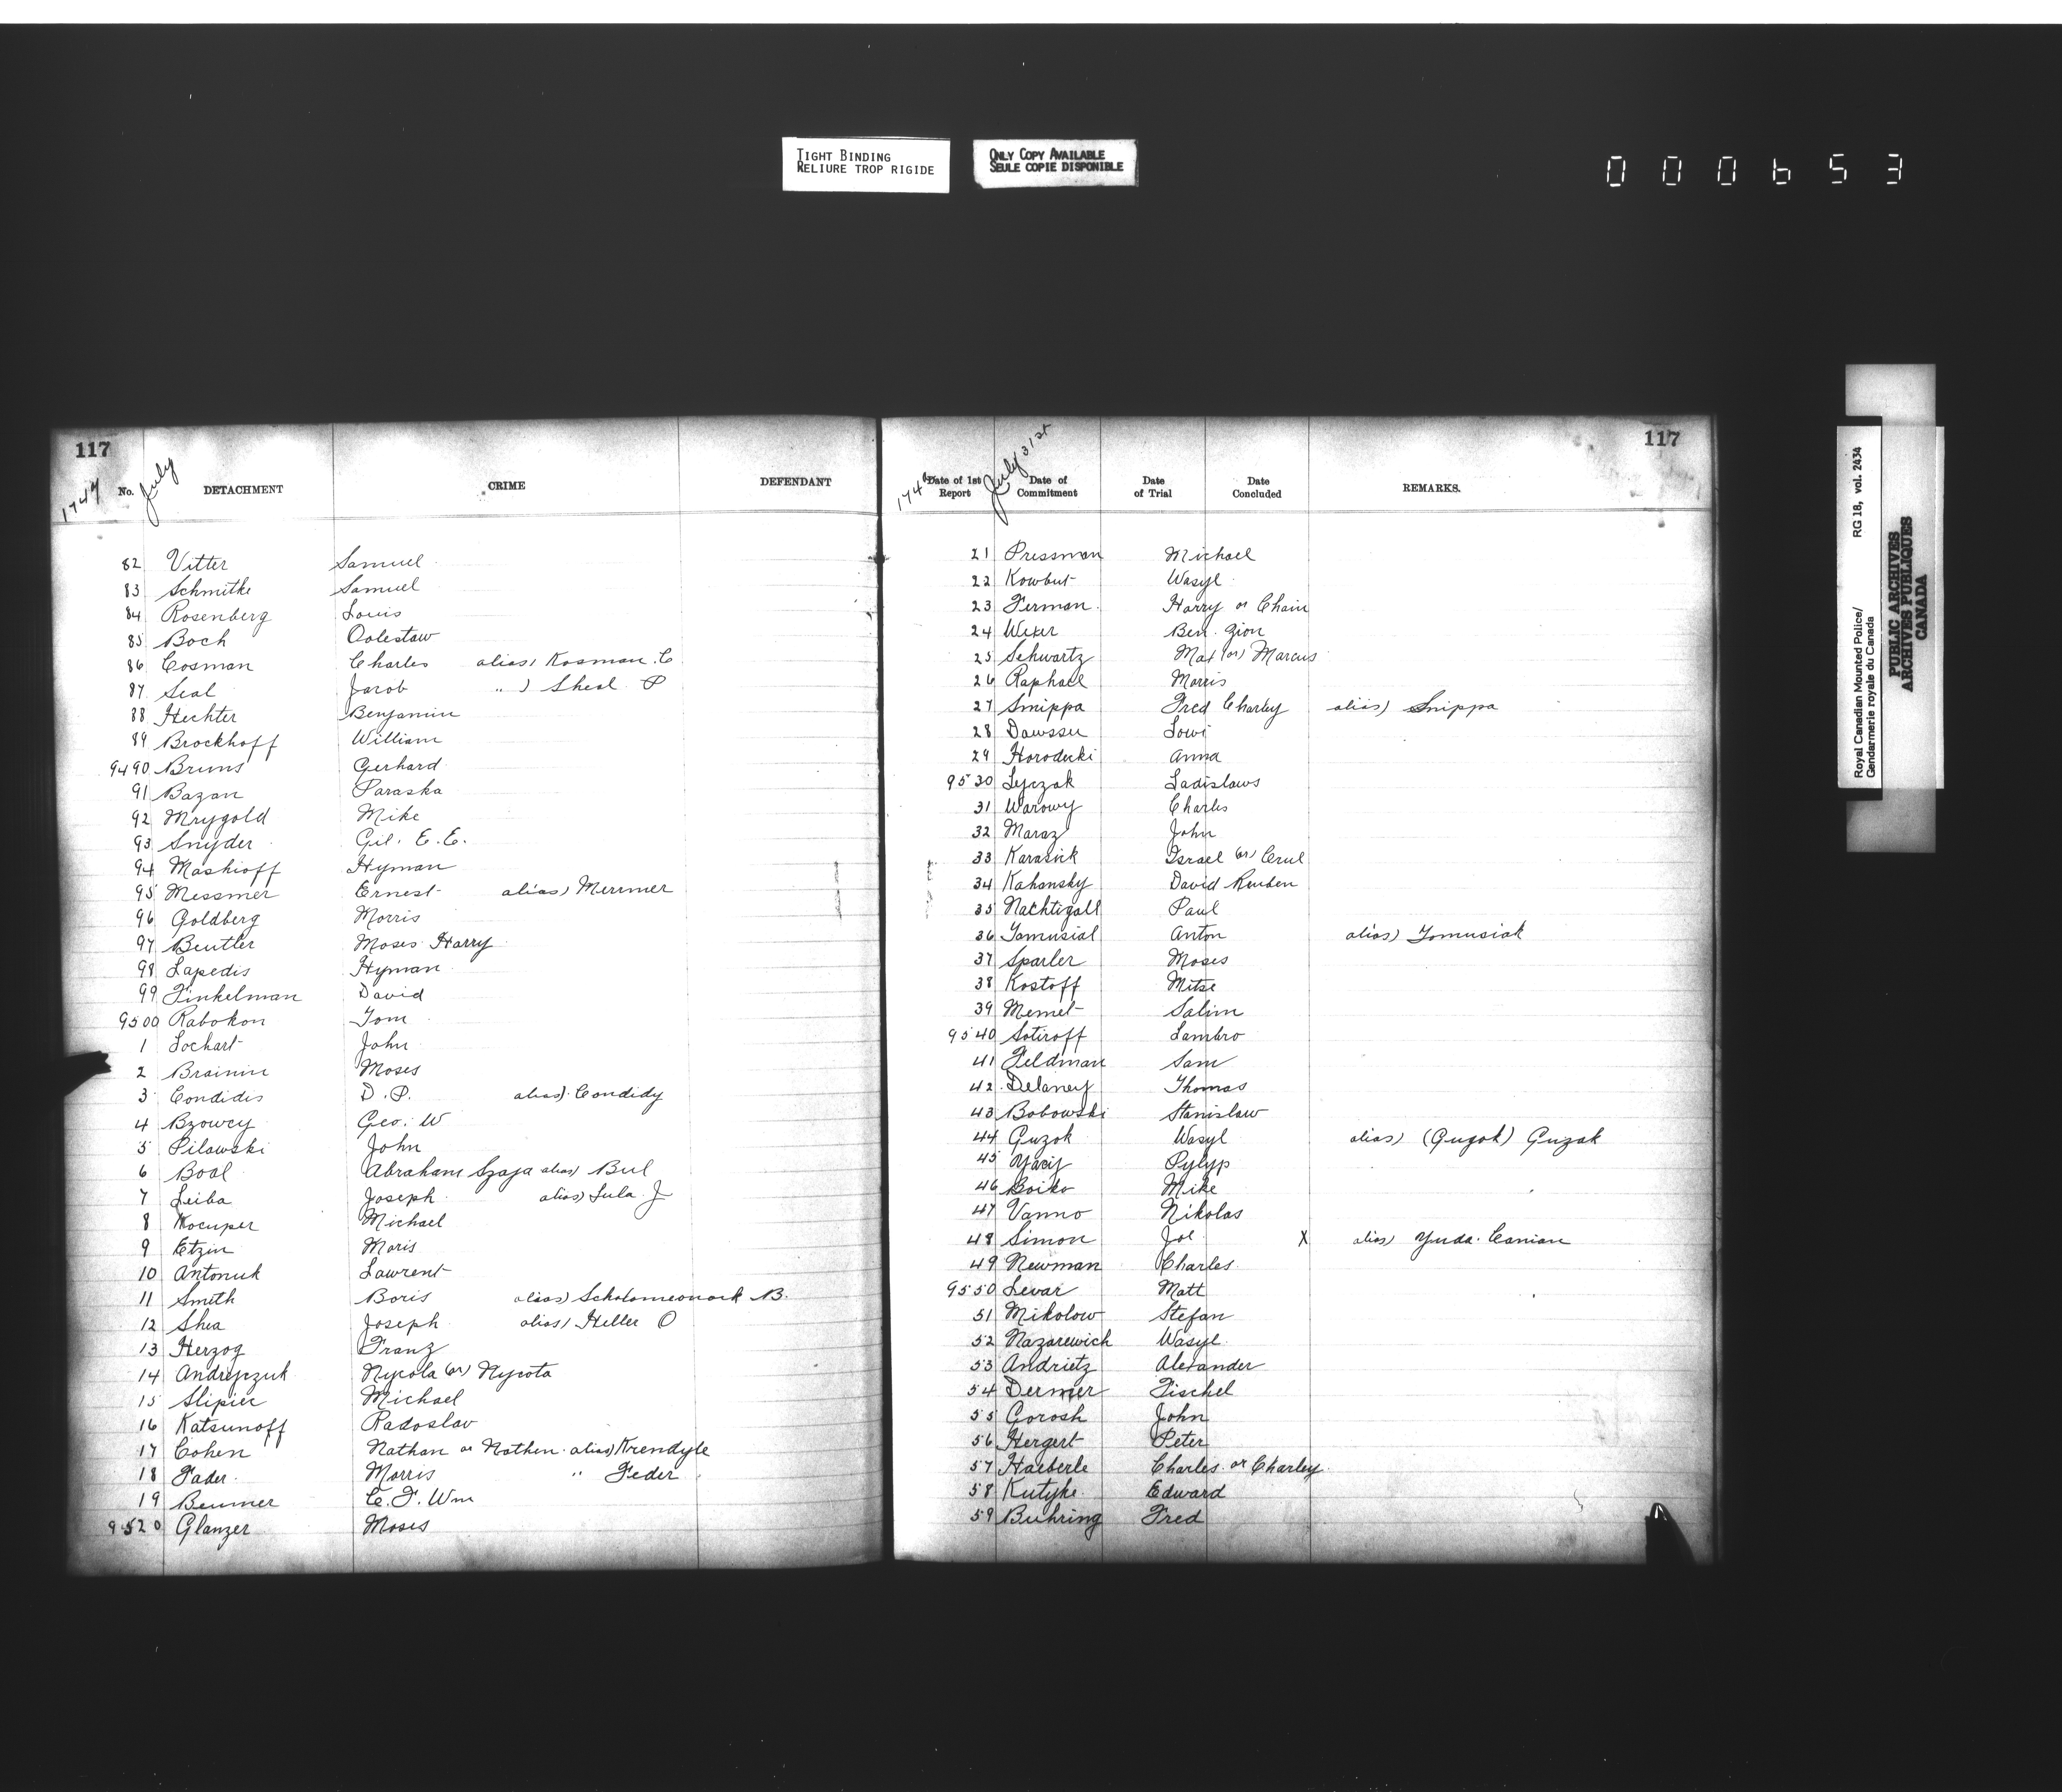 TIGHT BINDING
RELIURE TROP RIGIDE
ONLY COPY AVAILABLE
SEULE COPIE DISPONIBLE
000653
117
July
No. DETACHMENT CRIME DEFENDANT
82 Vitter Samuel
83 Schmitke Samuel
84 Rosenberg Louis
85 Boch
86 Cosman Charles alias) Kosman. C
87 Seal Jacob " ) Sheal P
88 Hechter Benjamin
89 Brockhoff William
9490 Bruns Gerhard
91 Bazan Paraska
92 Mrygold Mike
93 Snyder Gil. E. E.
94 Mashioff Hyman
95 Messmer Ernest alias) Merrmer
96 Goldberg Morris
97 Beutler Moses Harry
98 Lapedis Hyman
99 Finkelman David
9500 Rabokon Tom
1 Lochart John
2 Brainin Moses
3 Condidis D. P. alias) Condidy
4 Bzowcy Geo. W
5 Pilawski John
6 Boal Abraham Szaja alias) Bul
7 Leiba Joseph alias) Lula J
8 Kocuper Michael
9 Etzin Moris
10 Antoniuk Lawrent
11 Smith Boris alias) B.
12 Shea Joseph alias) Heller O
13 Herzog Franz
14 Andrejczuk Nycola (or) Nycota
15 Slipier Michael
16 Katsunoff Radoslav
17 Cohen Nathan or Nathen alias) Krendyle
18 Fader Morris " Feder
19 Beumer C. F. Wm
9520 Glanzer Moses
117
July 31st
Date of 1st Report Date of Commitment Date of Trial Date Concluded REMARKS.
21 Pressman Michael
22 Kowbut Wasyl
23 Ferman Harry or Chaim
24 Wexer Ben. Zion
25 Schwartz Max (or) Marcus
26 Raphael Morris
27 Smippa Fred Charley alias) Snippa
28 Dawsser Lowi
29 Horodecki Anna
9530 Lejczak Ladislaws
31 Warowy Charles
32 Maraz John
33 Karasick Israel (or) Cerul
34 Kahansky David Reuben
35 Nachtigall Paul
36 Tomusial Anton alias) Tomusiak
37 Sparler Moses
38 Kostoff Mitse
39 Memet Salim
9540 Sotiroff Lambro
41 Feldman Sam
42 Delaney Thomas
43 Bobowski Stanislaw
44 Guzok Wasyl alias) (Gugok) Guzak
45 Pylyp
46 Boiko Mike
47 Vanno Nikolas
48 Simon Joe X alias) Yuda Canian
49 Newman Charles
9550 Levar Matt
51 Mikolow Stefan
52 Nazarewich Wasyl
53 Andrietz Alexander
54 Dermer Fischel
55 Gorosh John
56 Hergert Peter
57 Haeberle Charles or Charley
58 Kutyke Edward
59 Buhring Fred
Royal Canadian Mounted Police/ RG 18, vol. 2434
Gendarmerie royale du Canada
PUBLIC ARCHIVES
ARCHIVES PUBLIQUES
CANADA